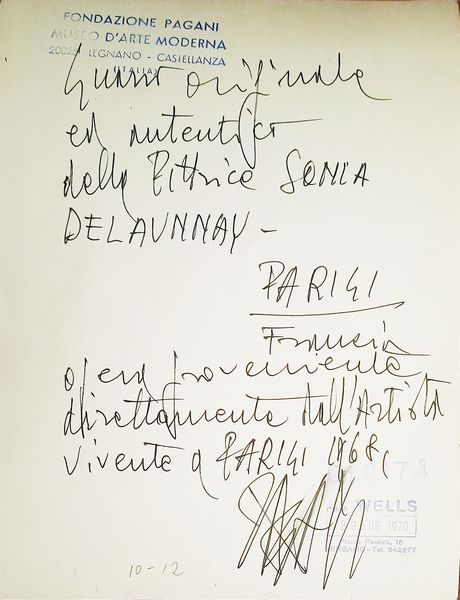 FONDAZIONE PAGANI
MUSEO D'ARTE MODERNA
20025 LEGNANO - CASTELLANZA
(ITALIA)
Guasso originale
ed autentico
della Pittrice SONIA
DELAUNNAY -
PARIGI
Francia
opera proveniente
direttamente dall'Artista
vivente a PARIGI 1968,
WELLS
LUG. 1970
10-12